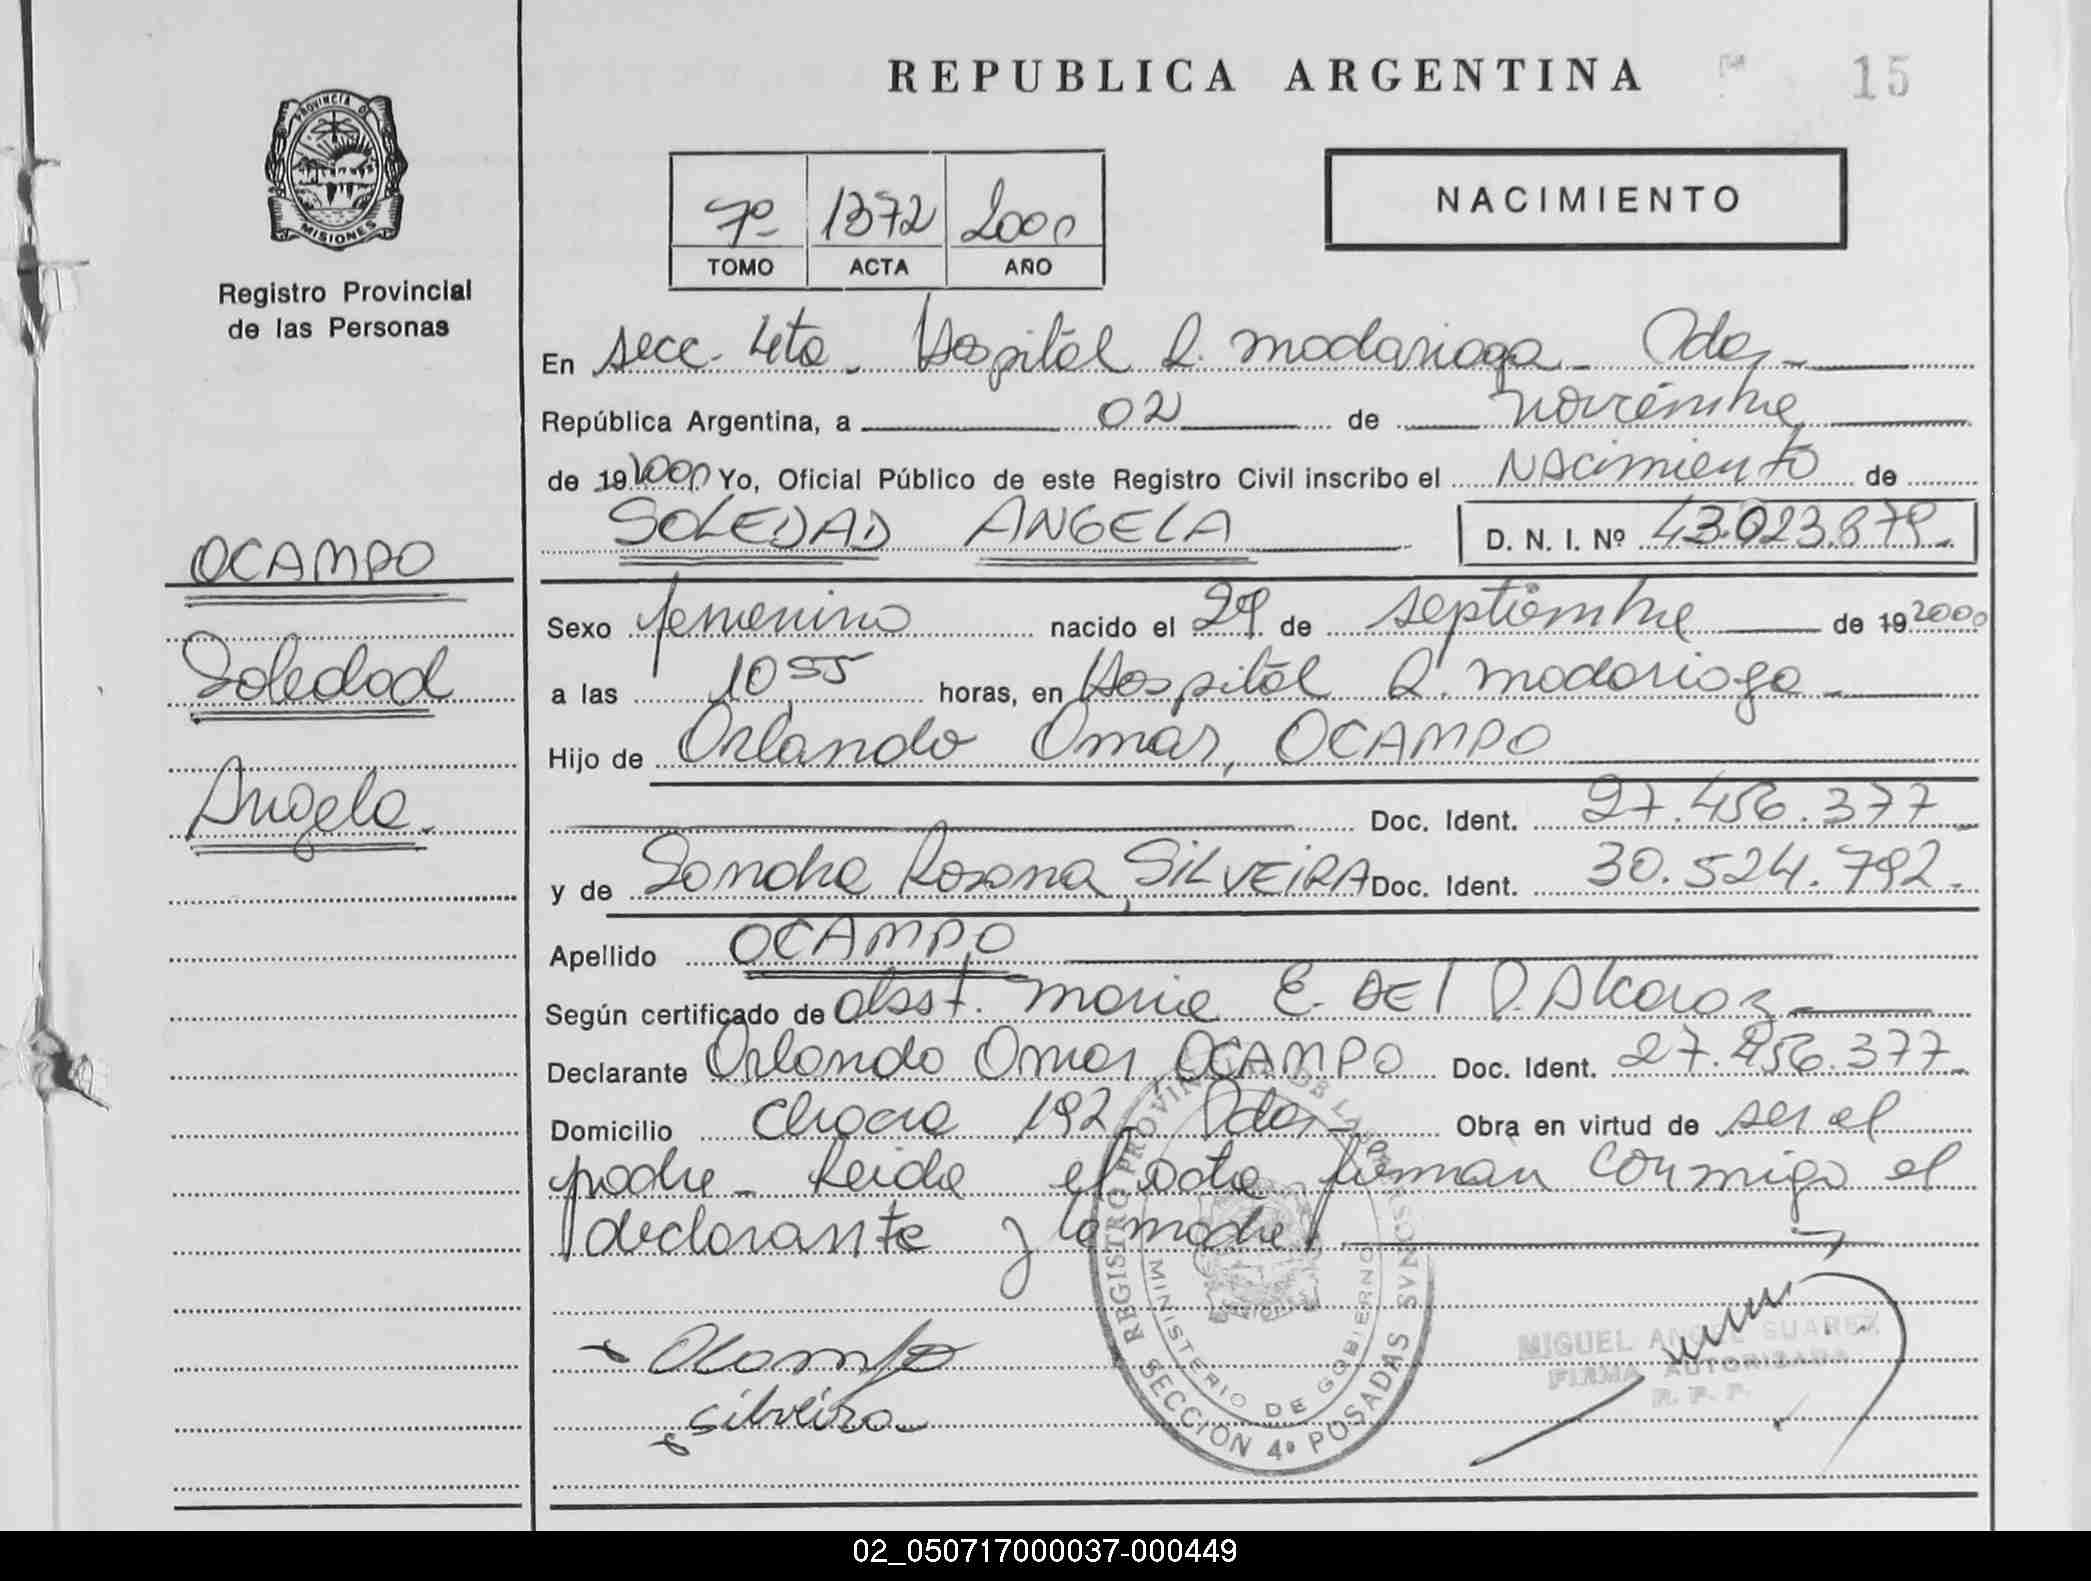 REPUBLICA ARGENTINA
15
PROVINCIA DE
MISIONES
Registro Provincial
de las Personas
7º 1372 2000
TOMO ACTA AÑO
NACIMIENTO
En Secc. 4ta. Hospital R. Madariaga - Pdas -
República Argentina, a 02 de noviembre
de 19 2000 Yo, Oficial Público de este Registro Civil inscribo el Nacimiento de
SOLEDAD ANGELA D. N. I. Nº 43.023.879.
OCAMPO
Soledad
Angela.
Sexo femenino nacido el 29 de septiembre de 19 2000
a las 10 55 horas, en Hospital R. Madariaga -
Hijo de Orlando Omar, OCAMPO
Doc. Ident. 27.456.377
y de Sandra Rosana, SILVEIRA Doc. Ident. 30.524.792.
Apellido OCAMPO
Según certificado de obst. Maria E. DEL P. Alcaraz
Declarante Orlando Omar OCAMPO Doc. Ident. 27.456.377
Domicilio Chacra 192 Pdas - Obra en virtud de ser el
padre - Leida el acta firman conmigo el
declarante y la madre
Ocampo
silveira
REGISTRO PROVINCIAL DE LAS PERSONAS
MINISTERIO DE GOBIERNO
SECCION 4º POSADAS
MIGUEL ANGEL SUAREZ
FIRMA AUTORIZADA
R. P. P.
02_050717000037-000449